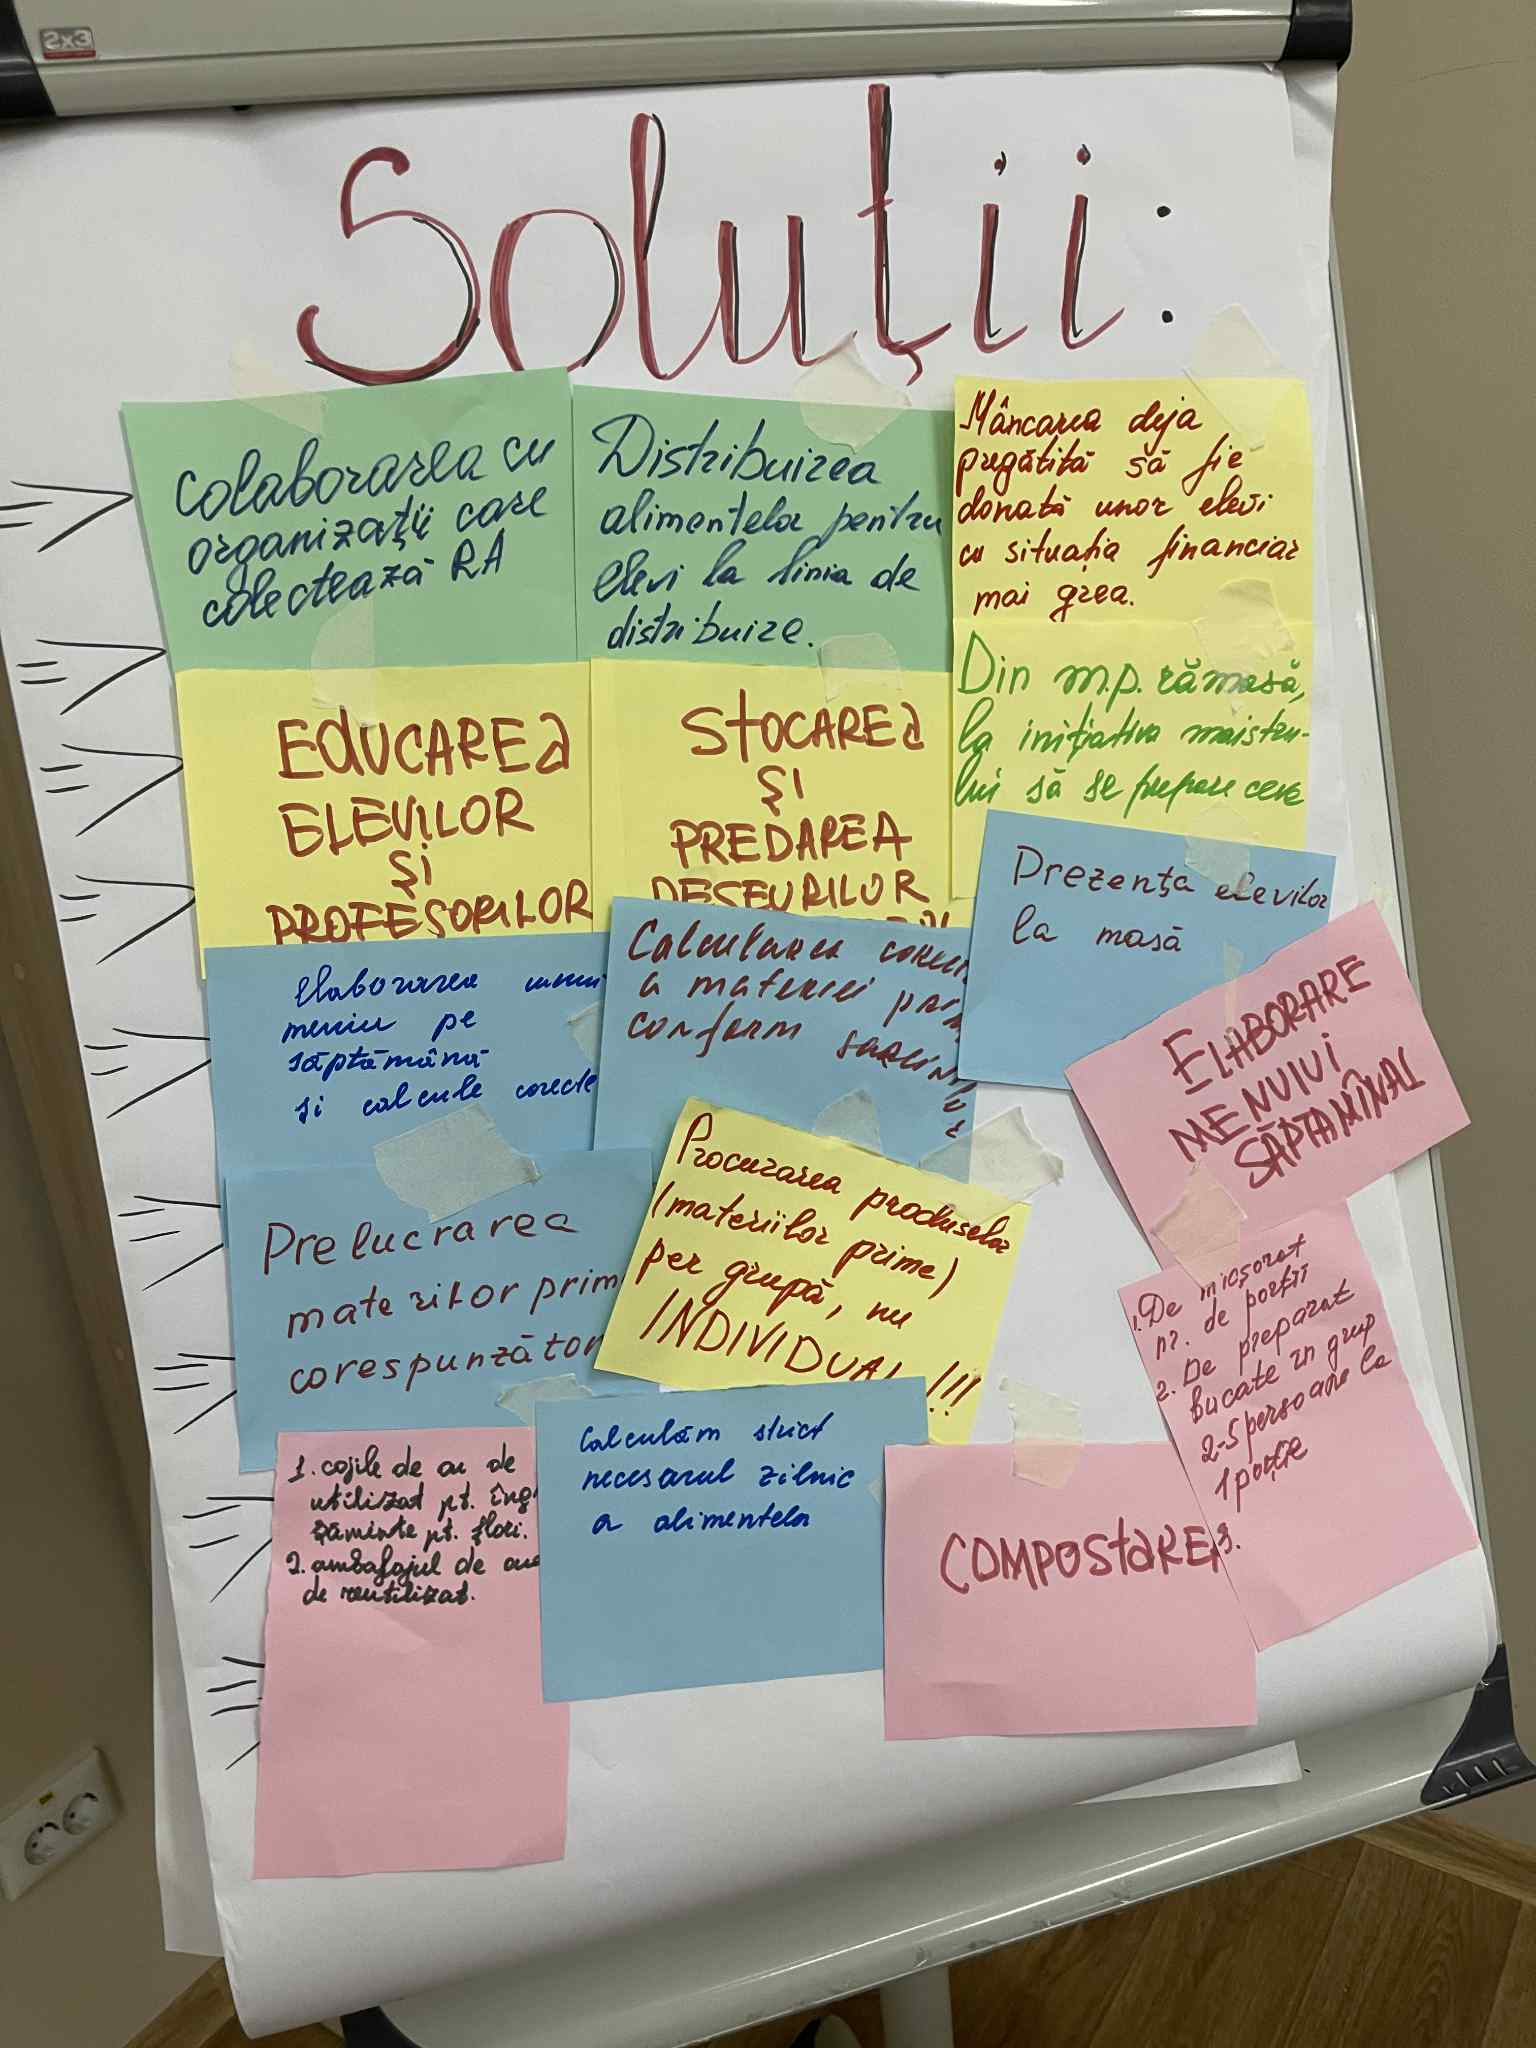 2x3
Soluții:
Colaborarea cu
organizații care
colectează RA
Distribuirea
alimentelor pentru
elevi la linia de
distribuire.
Mâncarea deja
pregătită să fie
donată unor elevi
cu situația financiar
mai grea.
EDUCAREA
ELEVILOR
ȘI
PROFESORILOR
STOCAREA
ȘI
PREDAREA
DEȘEURILOR
Din m.p. rămasă,
la inițiativa maistru-
lui să se prepare ceva
Prezența elevilor
la masă
elaborarea unui
meniu pe
săptămână
si calcule corecte
Calcularea
a materiei
conform
ELABORARE
MENUIUI
SĂPTAMÎNAL
Prelucrarea
materiilor prim
corespunzător
Procurarea produselor
(materiilor prime)
per grupă, nu
INDIVIDUAL!!!
1. De micșorat
nr. de porții
2. De preparat
bucate în grup
2-5 persoane la
1 porție
3.
1. cojile de ou de
utilizat pt. îng
răminte pt. flori.
2. ambalajul de oua
de reutilizat.
Calculăm strict
necesarul zilnic
a alimentelor
COMPOSTAREA